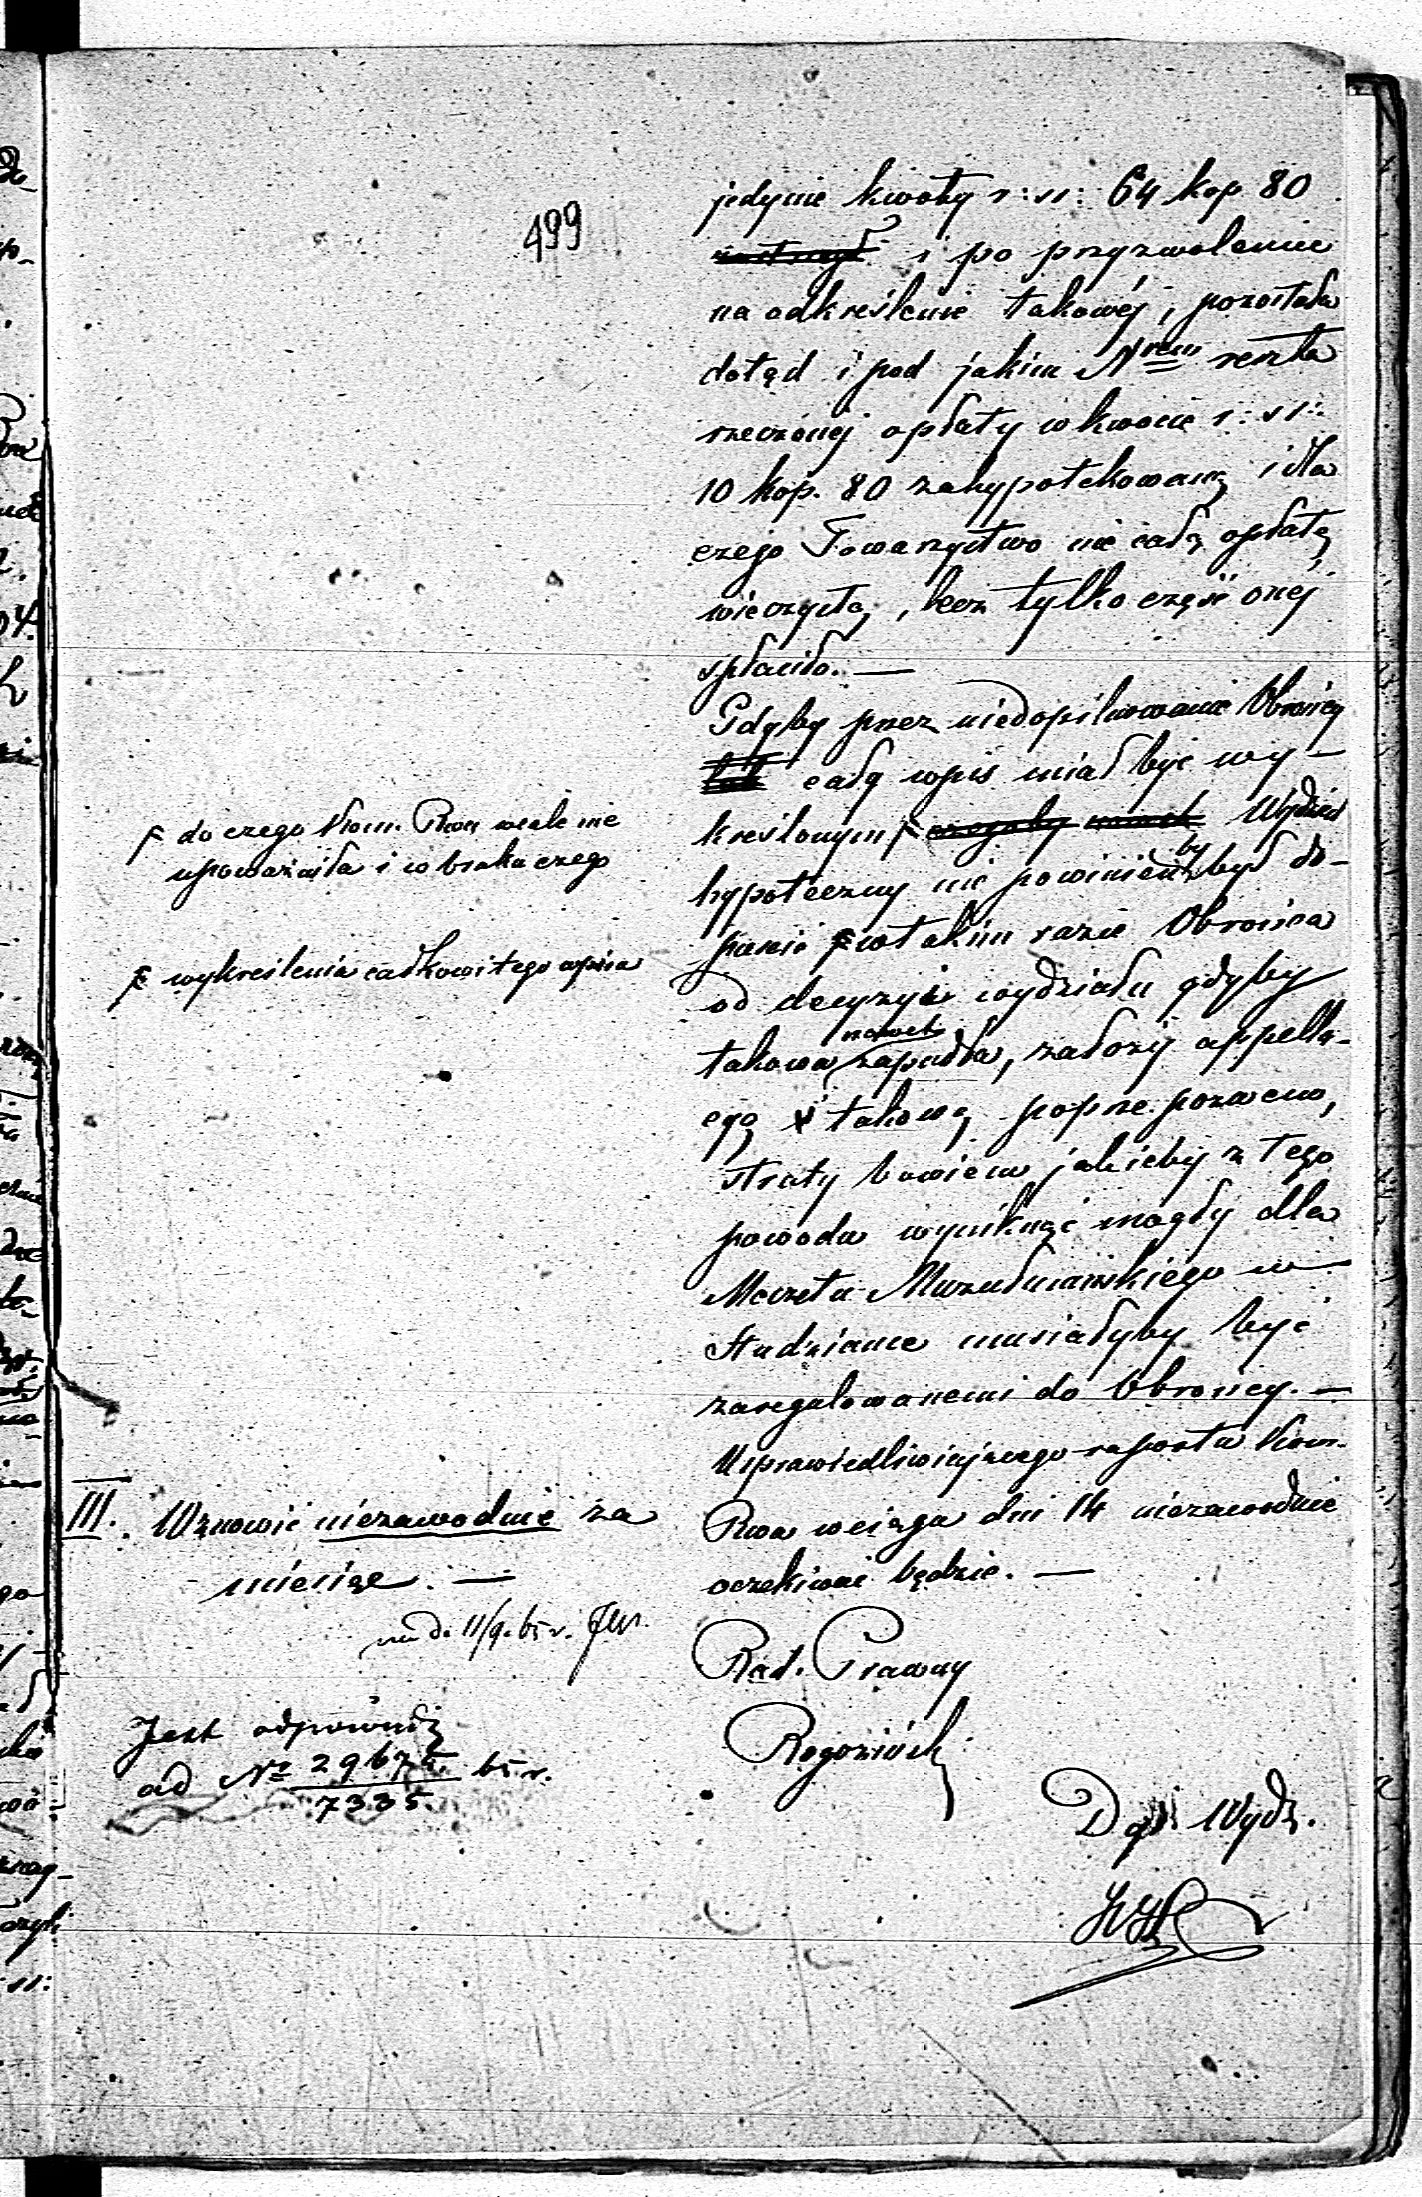 499
jedynie kwoty r: sr: 64 kop 80
i po przyzwolenie
na odkreślenie takowéj, pozostała
dotąd i pod jakim Nrem reszta
rzeczonéj opłaty w kwocie r: sr:
10 kop. 80 zahypotekowaną i dla
czego Towarzystwo nie całą opłatę
wieczystą, lecz tylko część onéj
spłaciło. —
Gdyby przez niedopilnowanie Obrońcy
cały wpis miał być wy-
kreślonym F Wydział
hypoteczny nie powinien by był do-
puścić F w takim razie Obrońca
od decyzyi wydziału gdyby
takowa nawet zapadła, założy appella-
cyą i takową poprze pozwem,
straty bowiem jakieby z tego
powodu wyniknąć mogły dla
Meczetu Muzułmańskiego w
Studziance musiałyby być
zaregulowanemi do Obrońcy. —
Usprawiedliwiającego raportu Kom.
Rwa w ciągu dni 14 niezawodnie
oczekiwać będzie. —
Rad. Prawny
Rogoziński
Dyr Wydz.
F do czego Kom. Rwa wcale nie
upoważniła i w braku czego
F wykreślenia całkowitego wpisu
III. Wznowić niezawodnie za
miesiąc. —
11/9. 65 r.
Jest odpowiedź
ad No 29675 65 r.
7335